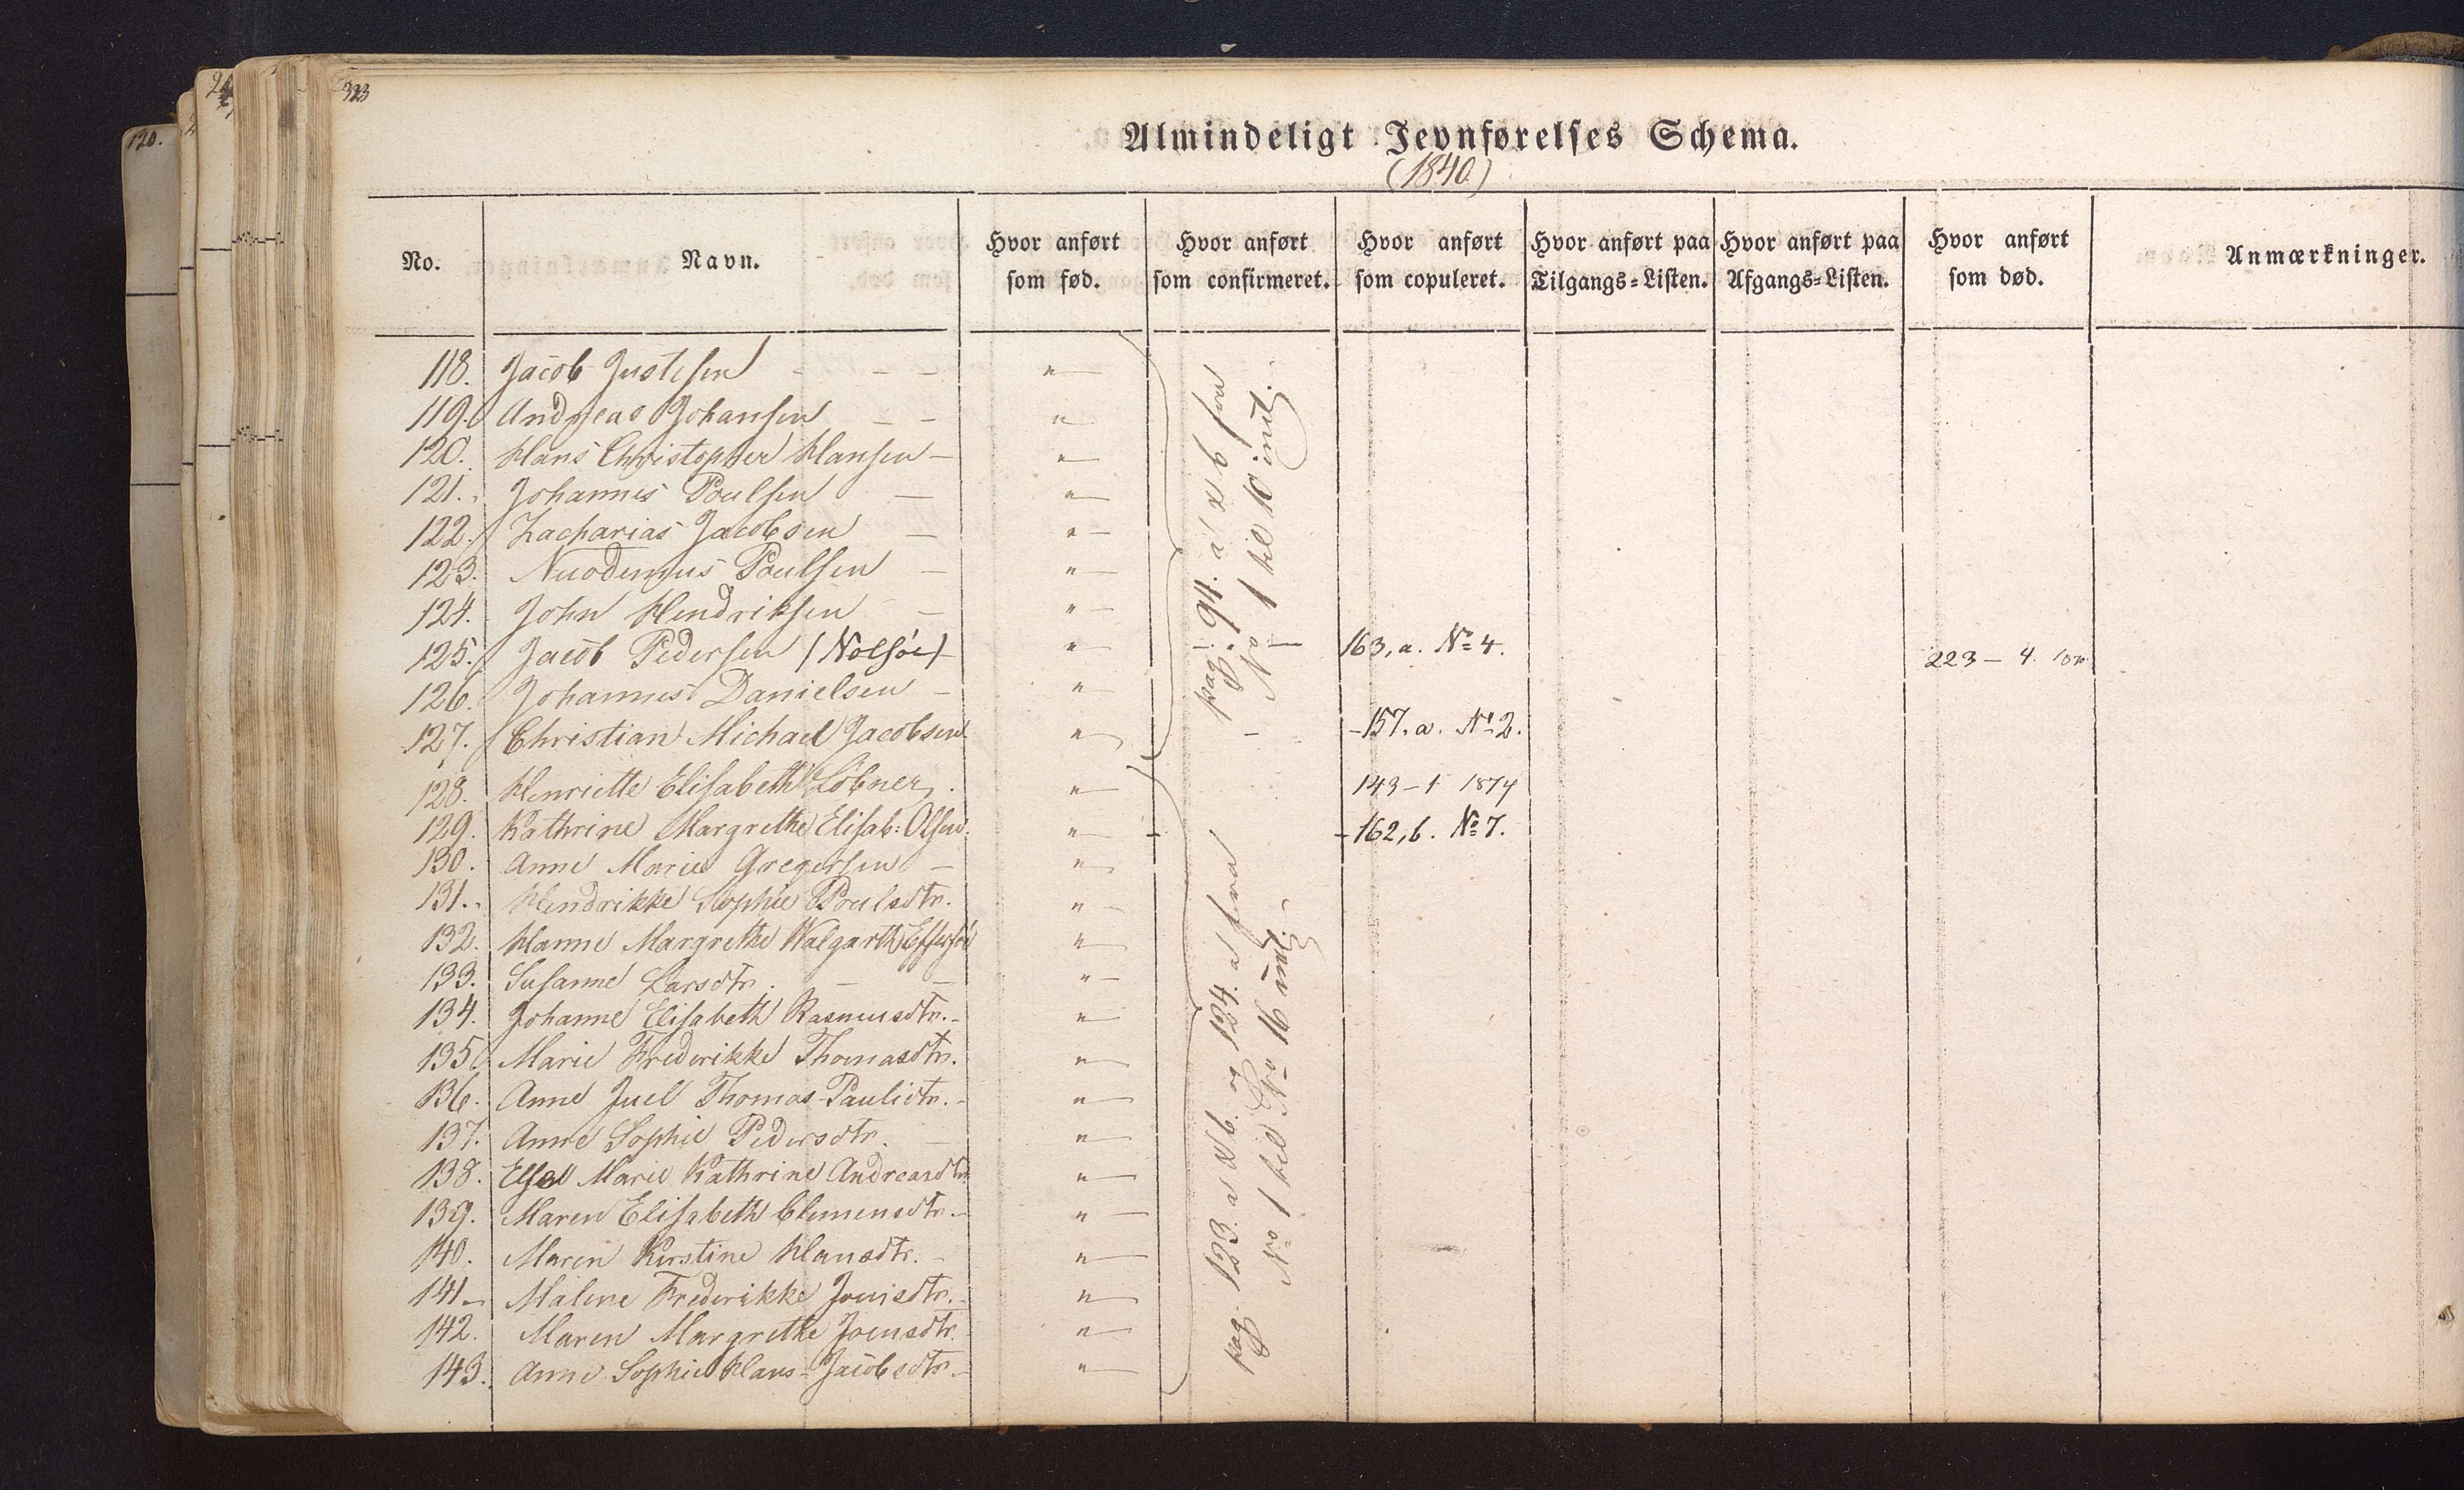 323
120.
Almindeligt Jevnførelses Schema.
(1840)
No. Navn. Hvor anført som fød. Hvor anført som confirmeret. Hvor anført som copuleret. Hvor anført paa Tilgangs=Listen. Hvor anført paa Afgangs=Listen. Hvor anført som død. Anmærkninger.
118. Jacob Justesen - - - " —
119. Andreas Johansen - - " —
120. Hans Christopher Hansen - " —
121. Johannes Poulsen — " —
122. Zacharias Jacobsen — " —
123. Nicodemus Poulsen — " —
124. John Hendriksen — " —
125. Jacob Pedersen (Nolsöe) - " — 163, a. No 4. 223 — 4.
126. Johannes Danielsen — " —
127. Christian Michael Jacobsen " — - 157. a. No 2.
128. Henriette Elisabeth Löbner. " — 143 - 1 1874
129. Kathrine Margrethe Elisab: Olsen. " — - 162, b. No 7.
130. Anne Marie Gregersen — " —
131. Hendrikke Sophie Poulsdtr. " —
132. Hanne Margrethe Walgarth Effersöe " —
133. Susanne Larsdtr. — — " —
134. Johanne Elisabeth Rasmusdtr. - " —
135. Marie Frederikke Thomasdtr. " —
136. Anne Juel Thomas-Paulidtr. - " —
137. Anne Sophie Pedersdtr. — " —
138. Else Marie Kathrine Andreasdtr. " —
139. Maren Elisabeth Clemensdtr. - " —
140. Maren Kirstine Hansdtr. - " —
141. Malene Frederikke Joensdtr. - " —
142. Maren Margrethe Joensdtr. " —
143. Anne Sophie Hans-Jacobsdtr. - " —
pag: 94. a & b fra
No 1 til 10 incl.
pag. 123. a & b. og 124. a fra
No 1 til No 16 incl.